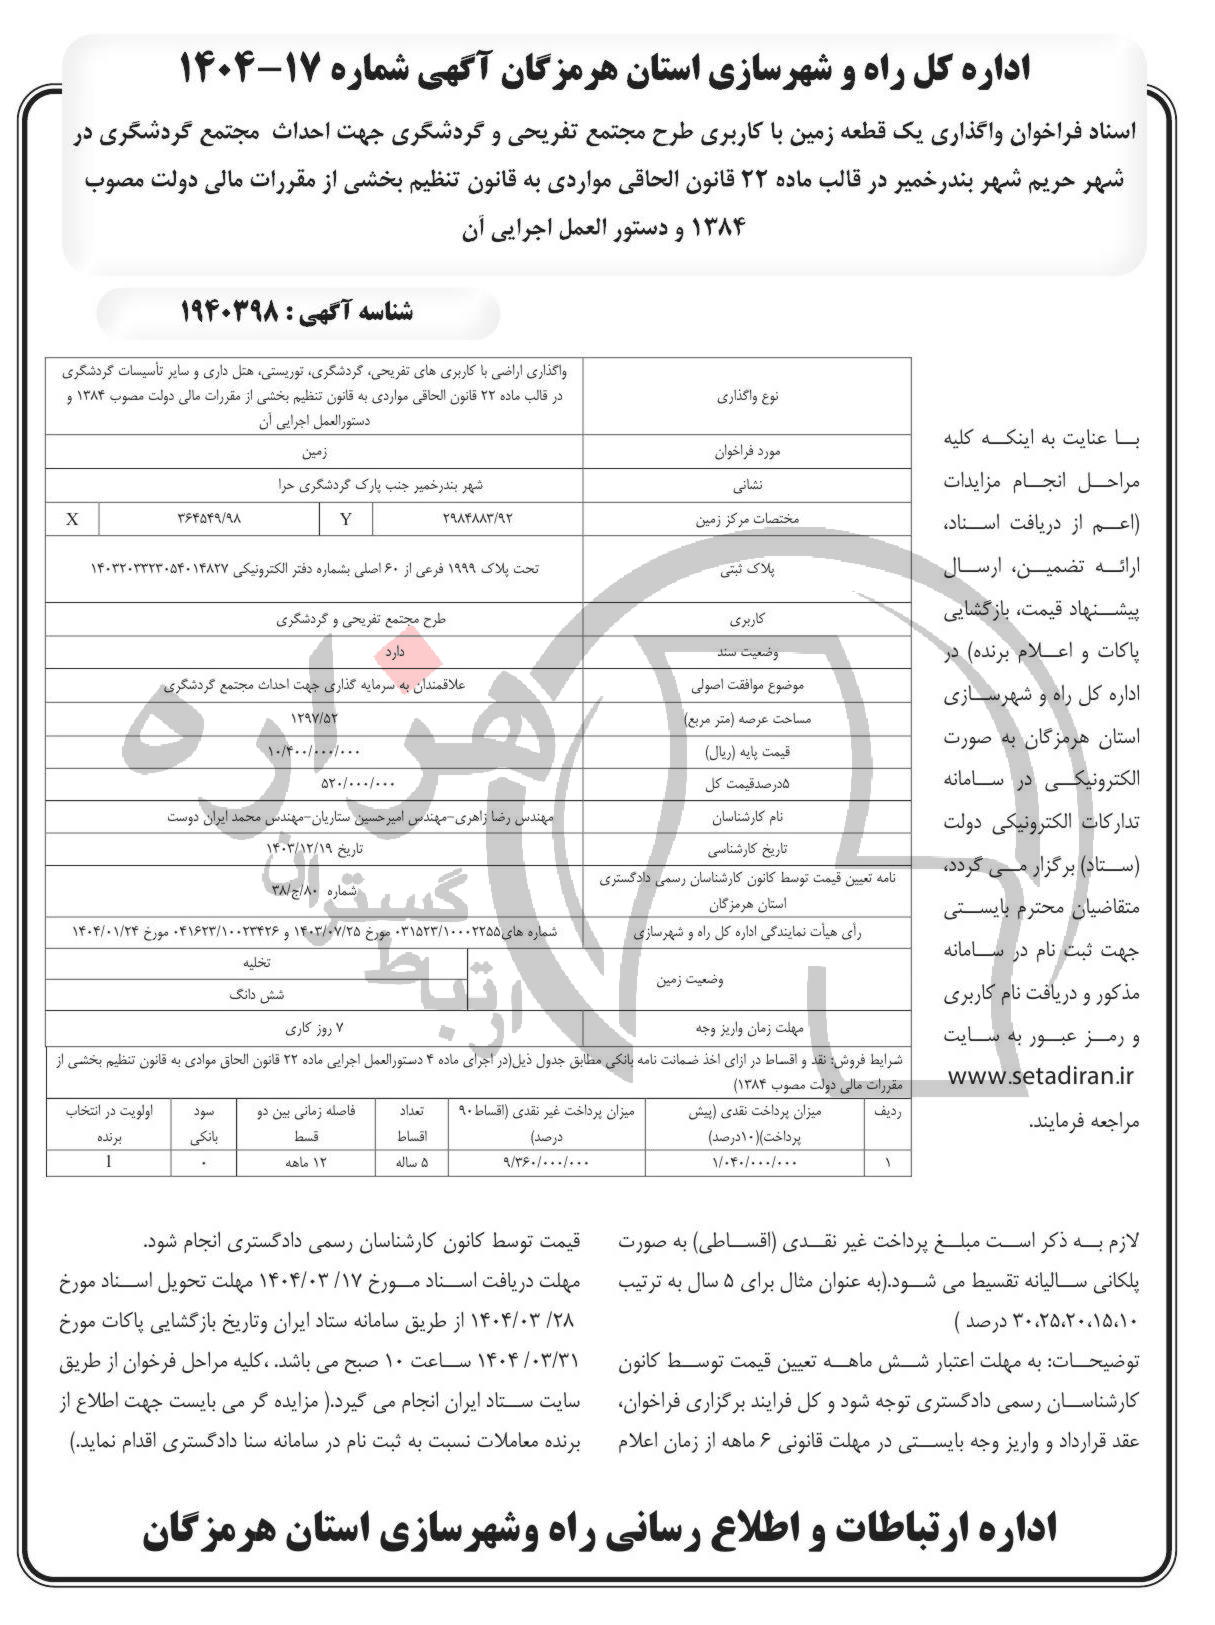 اداره کل راه و شهرسازی استان هرمزگان آگهی شماره ۱۷-۱۴۰۴
اسناد فراخوان واگذاری یک قطعه زمین با کاربری طرح مجتمع تفریحی و گردشگری جهت احداث مجتمع گردشگری در
شهر حریم شهر بندرخمیر در قالب ماده ۲۲ قانون الحاقی مواردی به قانون تنظیم بخشی از مقررات مالی دولت مصوب
۱۳۸۴ و دستور العمل اجرایی آن
شناسه آگهی : ۱۹۴۰۳۹۸
بــا عنایت به اینکــه کلیه
مراحــل انجــام مزایدات
(اعــم از دریافت اســناد،
ارائــه تضمیــن، ارســال
پیشــنهاد قیمت، بازگشایی
پاکات و اعــلام برنده) در
اداره کل راه و شهرســازی
استان هرمزگان به صورت
الکترونیکــی در ســامانه
تدارکات الکترونیکی دولت
(ســتاد) برگزار مــی گردد،
متقاضیان محترم بایســتی
جهت ثبت نام در ســامانه
مذکور و دریافت نام کاربری
و رمــز عبــور به ســایت
www.setadiran.ir
مراجعه فرمایند.
نوع واگذاری
واگذاری اراضی با کاربری های تفریحی، گردشگری، توریستی، هتل داری و سایر تأسیسات گردشگری
در قالب ماده ۲۲ قانون الحاقی مواردی به قانون تنظیم بخشی از مقررات مالی دولت مصوب ۱۳۸۴ و
دستورالعمل اجرایی آن
مورد فراخوان زمین
نشانی شهر بندرخمیر جنب پارک گردشگری حرا
مختصات مرکز زمین ۲۹۸۴۸۸۳/۹۲ Y ۳۶۴۵۴۹/۹۸ X
پلاک ثبتی تحت پلاک ۱۹۹۹ فرعی از ۶۰ اصلی بشماره دفتر الکترونیکی ۱۴۰۳۲۰۳۳۲۳۰۵۴۰۱۴۸۲۷
کاربری طرح مجتمع تفریحی و گردشگری
وضعیت سند دارد
موضوع موافقت اصولی علاقمندان به سرمایه گذاری جهت احداث مجتمع گردشگری
مساحت عرصه (متر مربع) ۱۲۹۷/۵۲
قیمت پایه (ریال) ۱۰/۴۰۰/۰۰۰/۰۰۰
۵درصدقیمت کل ۵۲۰/۰۰۰/۰۰۰
نام کارشناسان مهندس رضا زاهری-مهندس امیرحسین ستاریان-مهندس محمد ایران دوست
تاریخ کارشناسی تاریخ ۱۴۰۳/۱۲/۱۹
نامه تعیین قیمت توسط کانون کارشناسان رسمی دادگستری
استان هرمزگان
شماره ۸۰/ج/۳۸
رأی هیأت نمایندگی اداره کل راه و شهرسازی شماره های۰۳۱۵۲۳/۱۰۰۰۲۲۵۵ مورخ ۱۴۰۳/۰۷/۲۵ و ۰۴۱۶۲۳/۱۰۰۲۳۴۲۶ مورخ ۱۴۰۴/۰۱/۲۴
وضعیت زمین تخلیه
شش دانگ
مهلت زمان واریز وجه ۷ روز کاری
شرایط فروش: نقد و اقساط در ازای اخذ ضمانت نامه بانکی مطابق جدول ذیل(در اجرای ماده ۴ دستورالعمل اجرایی ماده ۲۲ قانون الحاق موادی به قانون تنظیم بخشی از
مقررات مالی دولت مصوب ۱۳۸۴)
ردیف میزان پرداخت نقدی (پیش میزان پرداخت غیر نقدی (اقساط۹۰ تعداد فاصله زمانی بین دو سود اولویت در انتخاب
پرداخت)(۱۰درصد) درصد) اقساط قسط بانکی برنده
۱ ۱/۰۴۰/۰۰۰/۰۰۰ ۹/۳۶۰/۰۰۰/۰۰۰ ۵ ساله ۱۲ ماهه ۰ 1
لازم بــه ذکر اســت مبلــغ پرداخت غیر نقــدی (اقســاطی) به صورت
پلکانی ســالیانه تقسیط می شــود.(به عنوان مثال برای ۵ سال به ترتیب
۳۰،۲۵،۲۰،۱۵،۱۰ درصد )
توضیحــات: به مهلت اعتبار شــش ماهــه تعیین قیمت توســط کانون
کارشناســان رسمی دادگستری توجه شود و کل فرایند برگزاری فراخوان،
عقد قرارداد و واریز وجه بایســتی در مهلت قانونی ۶ ماهه از زمان اعلام
قیمت توسط کانون کارشناسان رسمی دادگستری انجام شود.
مهلت دریافت اســناد مــورخ ۱۷/ ۱۴۰۴/۰۳ مهلت تحویل اســناد مورخ
۲۸/ ۱۴۰۴/۰۳ از طریق سامانه ستاد ایران وتاریخ بازگشایی پاکات مورخ
۰۳/۳۱/ ۱۴۰۴ ســاعت ۱۰ صبح می باشد. ،کلیه مراحل فرخوان از طریق
سایت ســتاد ایران انجام می گیرد.( مزایده گر می بایست جهت اطلاع از
برنده معاملات نسبت به ثبت نام در سامانه سنا دادگستری اقدام نماید.)
اداره ارتباطات و اطلاع رسانی راه وشهرسازی استان هرمزگان
هزاره
گسترش
ارتباط